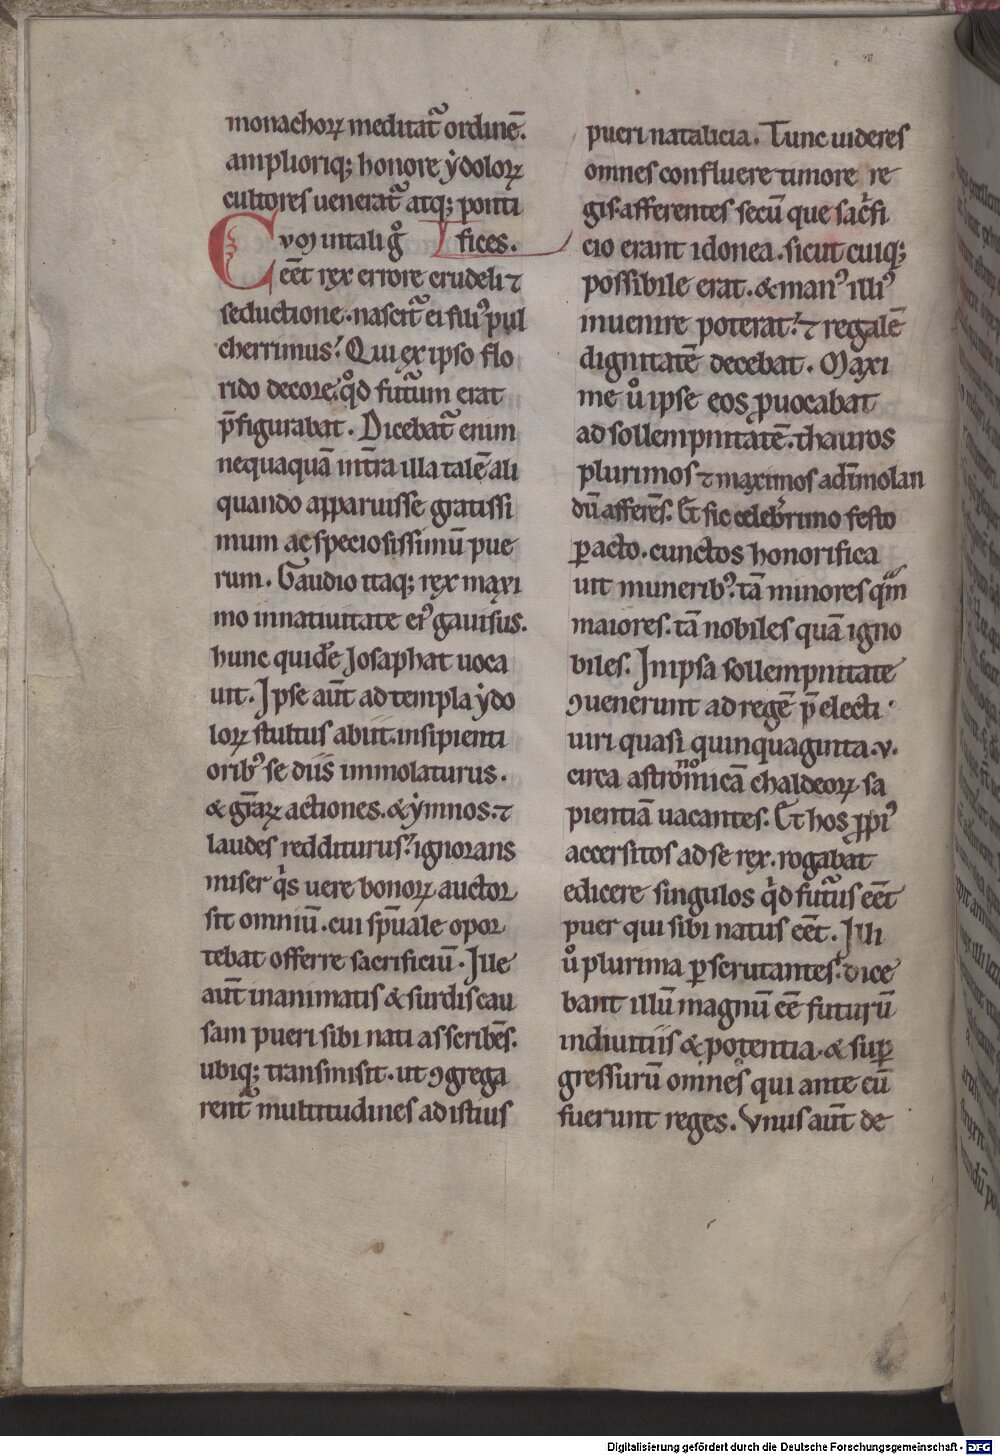 monachoꝝ meditat᷑ ordinē.
ampliorīq; honore ẏdoloꝝ
cultores uenerat᷑ atq; ponti
fices.
Cvm in tali gͦ
eēt rex errore crudeli ⁊
seductione. nascit᷑ ei filiꝰ pul
cherrimus. Qui ex ipso flo
rido decore. qͦd futurum erat
p̄figurabat. Dicebat᷑ enim
nequaquā int̄ra illa talē ali
quando apparuisse gratissi
mum ac speciosissimū pue
rum. Gaudio itaq; rex maxi
mo in natiuitate eiꝰ gauisus.
hunc quidē Josaphat uoca
uit. Ipse aūt ad templa ẏdo
loꝝ stultus abiit. insipienti
oribꝰ se diis immolaturus.
& gr̄aꝝ actiones. & ẏmnos. ⁊
laudes redditurus. ignorans
miser qͥs uere bonoꝝ auctor
sit omniū. cui sp̄uale opor
tebat offerre sacrificiū. Ille
aūt inanimatis & surdis cau
sam pueri sibi nati asscribēs.
ubiq; transmisit. ut ꝯgrega
rent᷑ multitudines ad istius
pueri natalicia. Tunc uideres
omnes confluere timore re
gis. afferentes secū que sacͥfi
cio erant idonea. sicut cuiq;
possibile erat. & manꝰ illiꝰ
inuenire poterat. ⁊ regalē
dignitatē decebat. Maxi
me uͦ ipse eos ꝓuocabat
ad sollempnitatē. thauros
plurimos ⁊ maximos ad īmolan
dū afferēs. Et sic celeb͛rimo festo
ꝑacto. cunctos honorifica
uit muneribꝰ. tā minores qͣm
maiores. tā nobiles quā igno
biles. In ipsa sollempnitate
ꝯuenerunt ad regē p̄electi
uiri quasi quinquaginta. v.
circa astronomicā chaldeoꝝ sa
pientiā uacantes. Et hos ꝓpiꝰ
accersitos ad se rex. rogabat
edicere singulos qͥd futurus eēt
puer qui sibi natus eēt. Illi
uͦ plurima ꝑscrutantes. dice
bant illū magnū eē futurū
in diuitiis & potentia. & suꝑ
gressurū omnes qui ante eū
fuerunt reges. Vnus aūt de
Digitalisierung gefördert durch die Deutsche Forschungsgemeinschaft - DFG